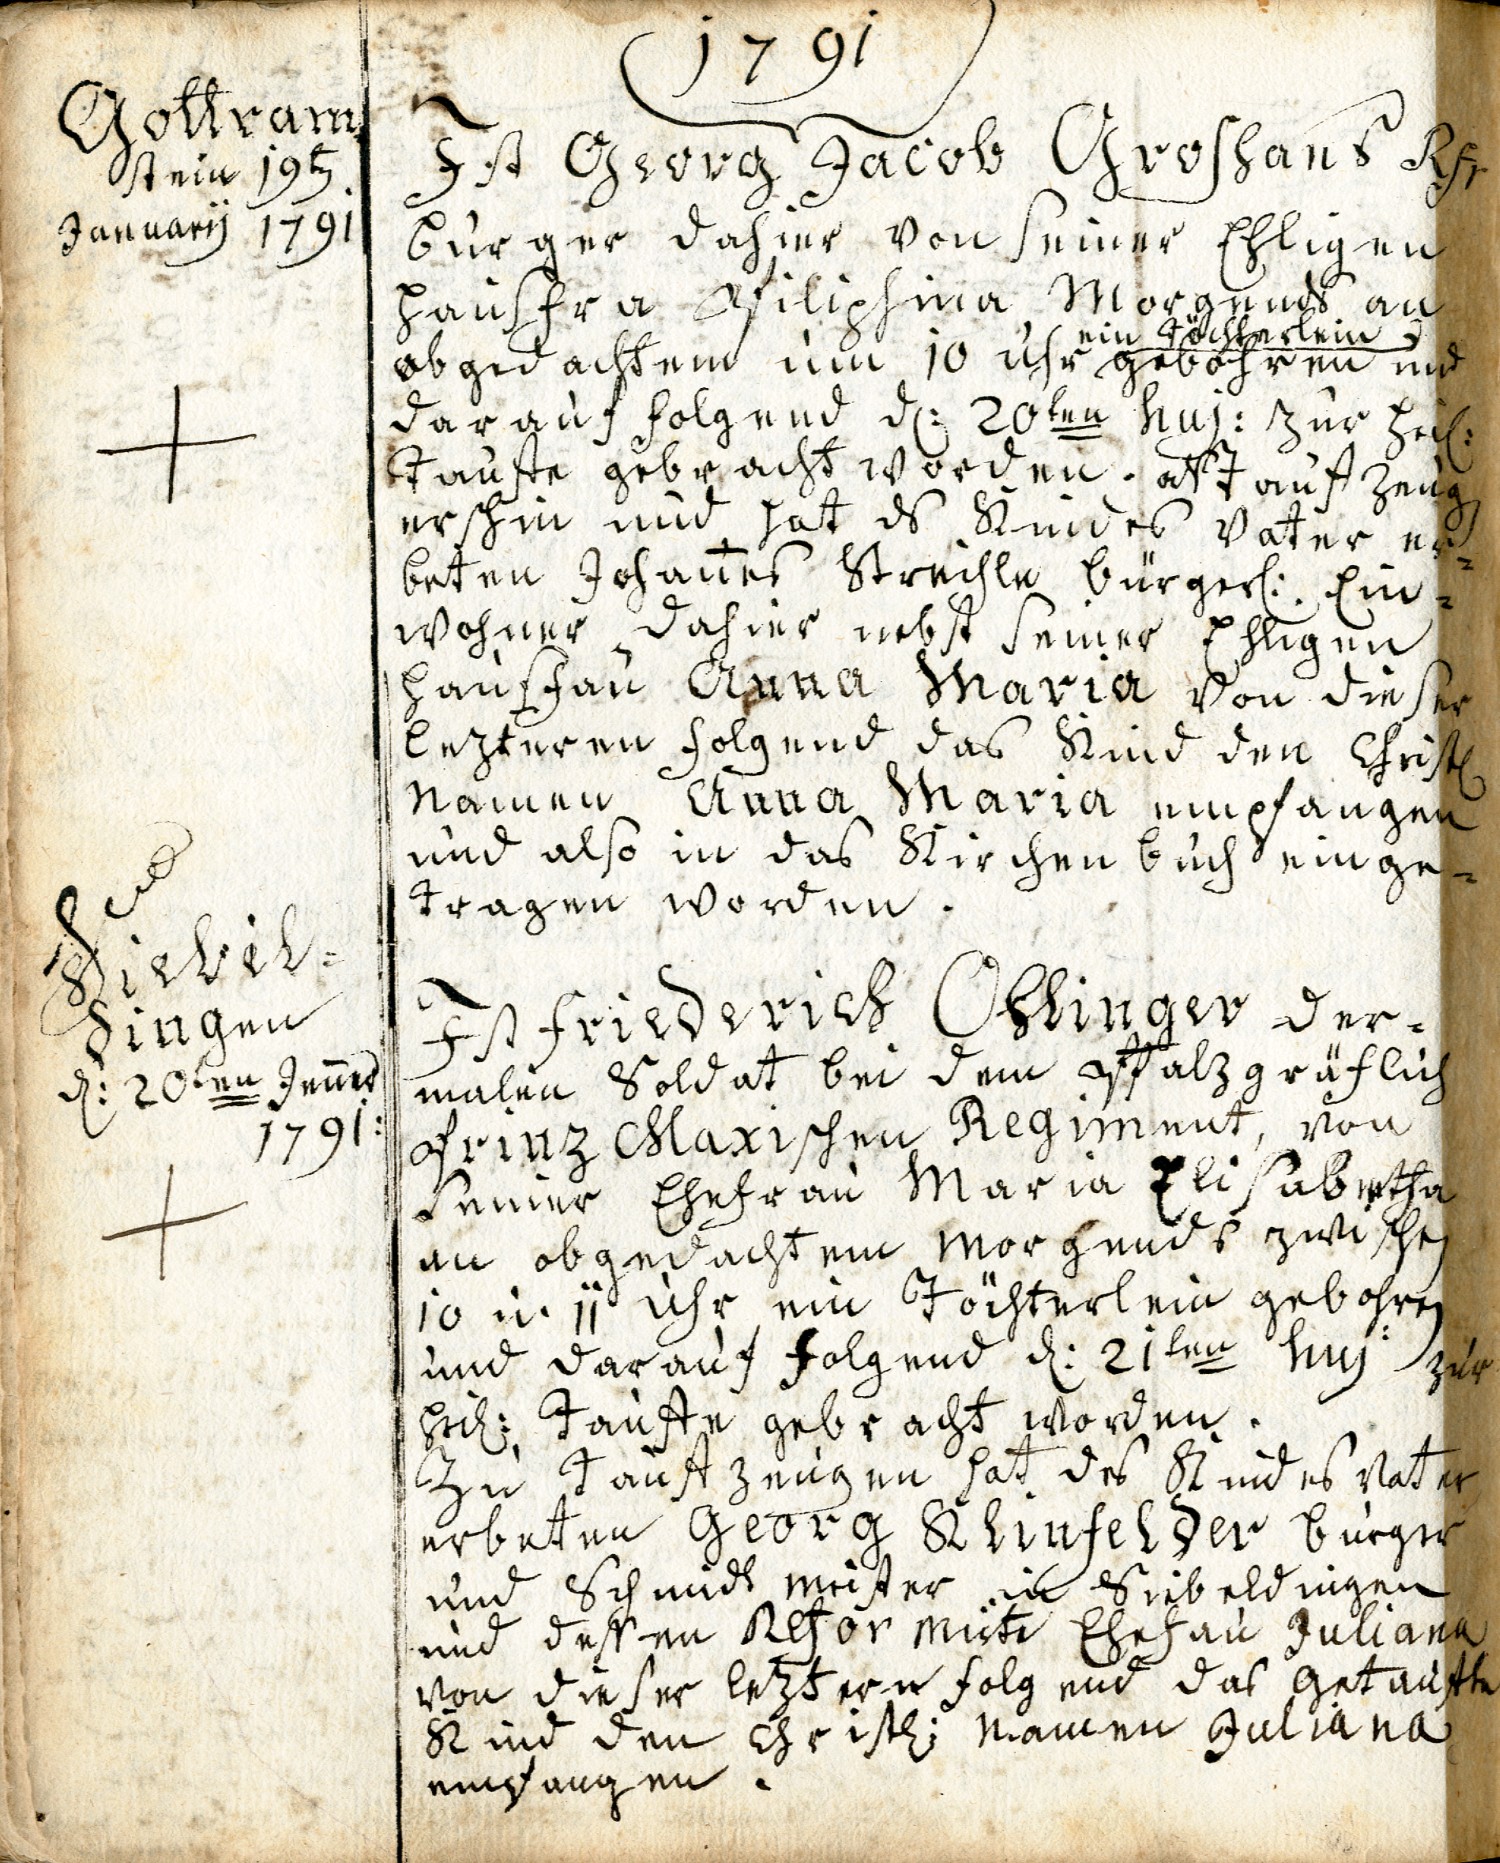 1791
Gottram
stein 19t.
Januarij 1791
Ist Georg Jacob Groshans Rfr
burger dahier von seiner Ehligen
Hausfra Philiphina Morgends an
ein Töchterlein
obgedachtem um 10 Uhr gebohren und
darauf folgend d: 20ten huj: zur heil:
Taufte gebracht worden. als Taufzeug
erschin und hat ds Kindes Vater er-
beten Johañes Streichle bürgerl: Ein-
wohner dahier nebst seiner Ehligen
Hausfau Anna Maria von dieser
lezteren folgend das Kind den Christl
Namen Anna Maria empfangen
und also in das Kirchen buch einge-
tragen worden.
Siebel-
dingen
d: 20ten Jeñer
1791:
Ist Friederich Ohlinger der-
malen Soldat bei dem Pfalzgräflich
Prinz Maxischen Regiment, von
seiner Ehefrau Maria Elisabetha
an obgedachtem Morgends zwischen
10 u. 11 Uhr ein Töchterlein gebohren
und darauf folgend d: 21ten huj: zur
heil: Taufte gebracht worden.
Zu Tauftzeugen hat des Kindes Vater
erbeten Georg Klinfelder burger
und Schmidt meister in Siebeldingen
und dessen Refor mirte Ehefau Juliana
von dieser leztern folgend das getaufte
Kind den Christl: Namen Juliana
empfangen.